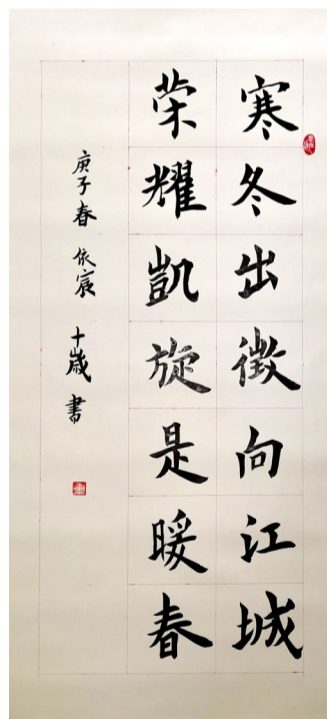 寒冬出徵向江城
荣耀凱旋是暖春
庚子春 依宸 十歲書